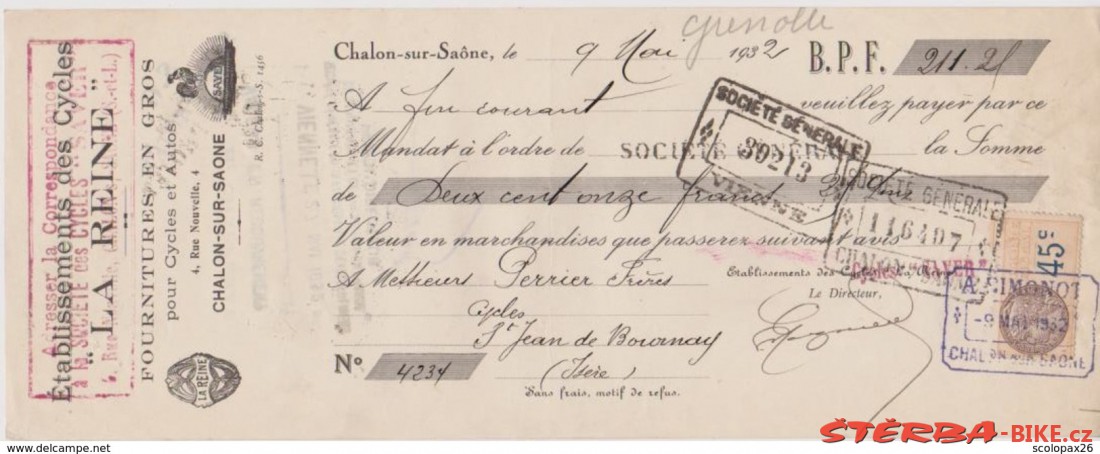 Grenoble
Chalon-sur-Saône, le 9 Mai 1932 B.P.F. 211.25
A fin courant veuillez payer par ce
Mandat à l'ordre de SOCIÉTÉ GÉNÉRALE la Somme
de Deux cent onze francs
Valeur en marchandises que passerez suivant avis
A Messieurs Perrier Frères
Cycles
St Jean de Bournay
(Isère)
Nº 4234
Sans frais, motif de refus.
Etablissements des Cycles
Le Directeur,
SAYER
SOCIÉTÉ GÉNÉRALE
39213
VIENNE
SOCIÉTÉ GÉNÉRALE
116407
CHALON
SAONE
45c
A. SIMONOT
-9 MAI 1932
CHALON SUR SAONE
Adresser la Correspondance
à la SOCIÉTÉ des CYCLES SAYER
Établissements des Cycles
"LA REINE"
FOURNITURES EN GROS
pour Cycles et Autos
4, Rue Nouvelle, 4
CHALON-SUR-SAONE
SAYER
LA REINE
ŠTĚRBA-BIKE.cz
www.delcampe.net
scolopax26